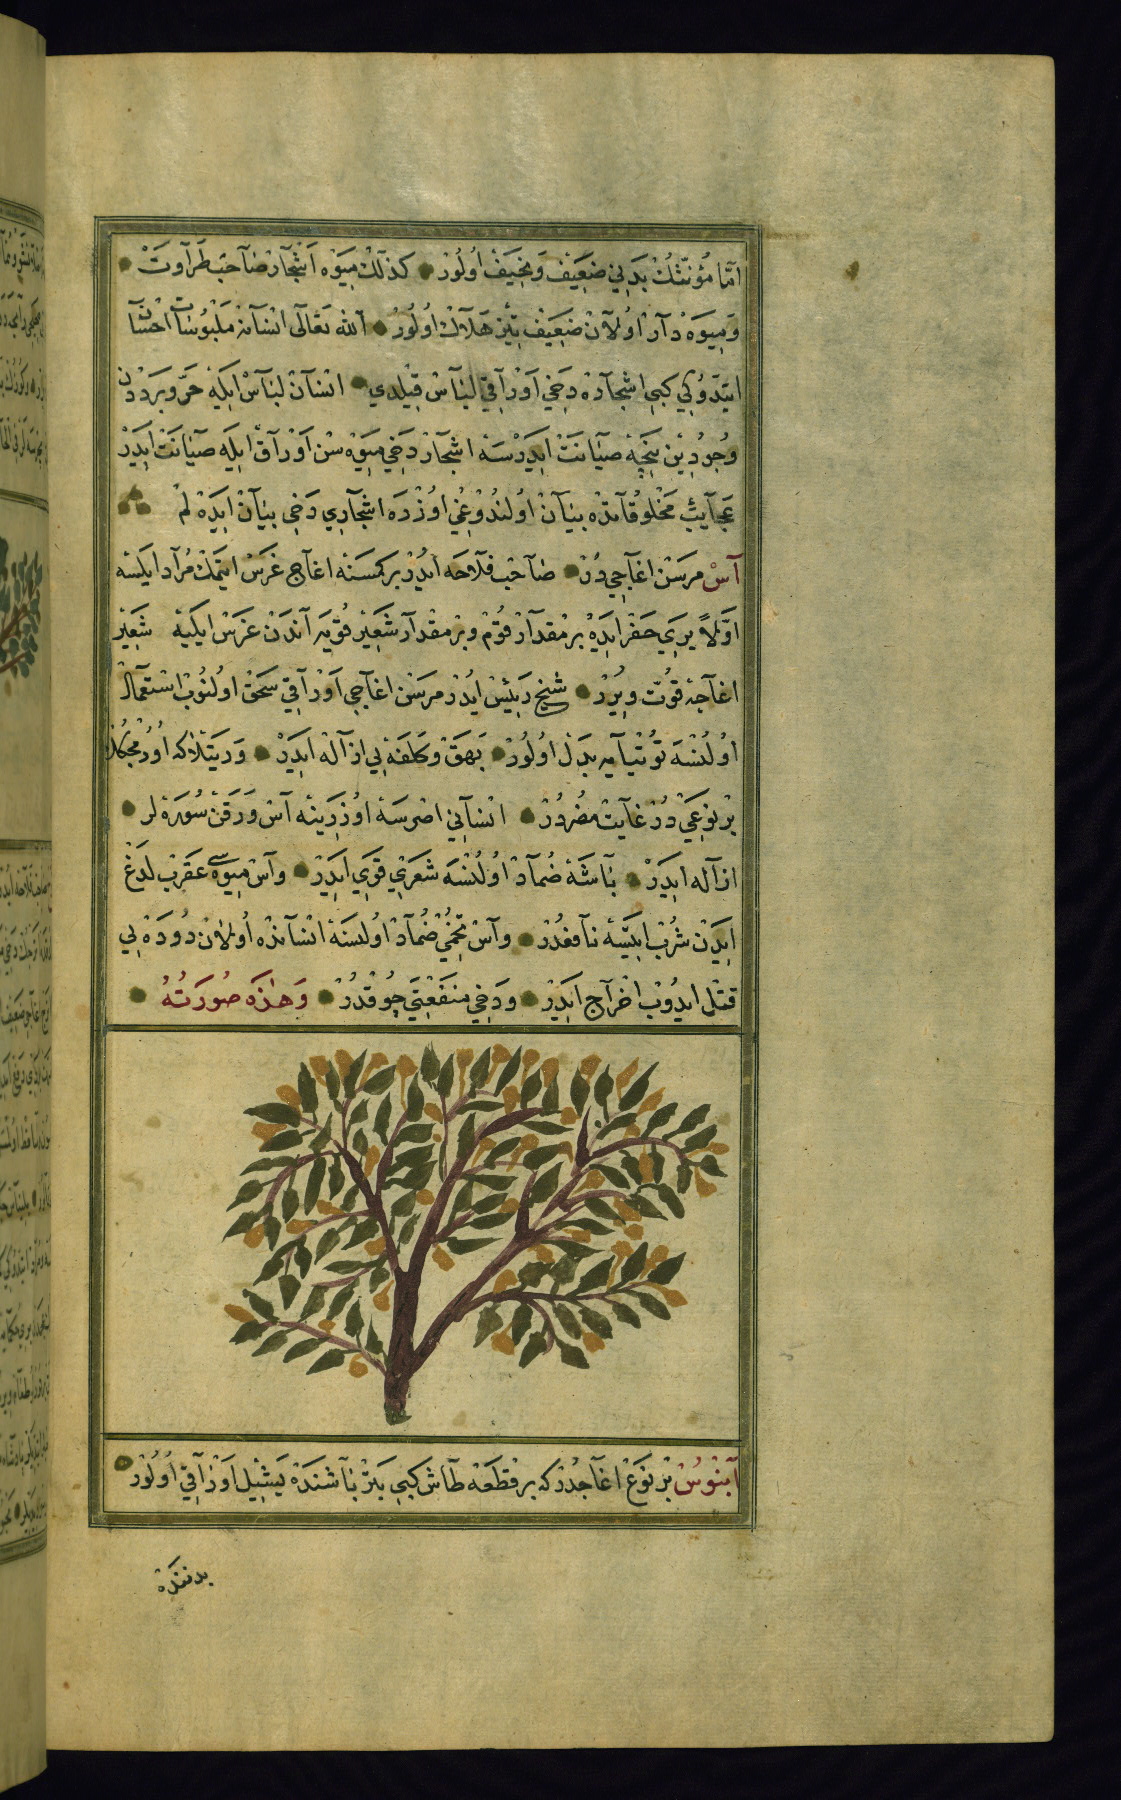 امّا مؤنّثك بدني ضعيف و نحيف اولور كذلك ميوه اشجار صاحب طراوت
و ميوه دار اولان ضعيف تيز هلاك اولور الله تعالى انسانه ملبوسات احسان
ايتدوكي كبي اشجاره دخي اوراقي لباس قيلدي انسان لباس ايله حر و بردن
وجودين نيجه صيانت ايدرسه اشجار دخي ميوه سن اوراق ايله صيانت ايدر
عجايب مخلوقاتده بيان اولندوغي اوزره اشجاري دخي بيان ايده لم
آس مرسن اغاجي در صاحب فلاحه ايدر بر كمسنه اغاج غرس ايتمك مراد ايلسه
اوّلا يري حفر ايده بر مقدار قوم و بر مقدار شعير قويه آندن غرس ايليه شعير
اغاجه قوّت ويرر شيخ رئيس ايدر مرسن اغاجي اوراقي سحق اولنوب استعمال
اولنسه توتيايه بدل اولور بهق و كلفه يي ازاله ايدر و رتيلا كه اورمجكك
بر نوعي در غايت مضردر انساني اصرسه اوزرينه آس ورقن سوره لر
ازاله ايدر باشه ضماد اولنسه شعري قوي ايدر و آس ميوه سي عقرب لدغ
ايدن شرب ايليسه نافعدر و آس تخمي ضماد اولسنه انسانده اولان دوده يي
قتل ايدوب اخراج ايدر و دخي منفعتي چوقدر وهذه صورته
آبنوس بر نوع اغاجدر كه بر قطعه طاش كبي يتر باشنده يشيل اوراقي اولور